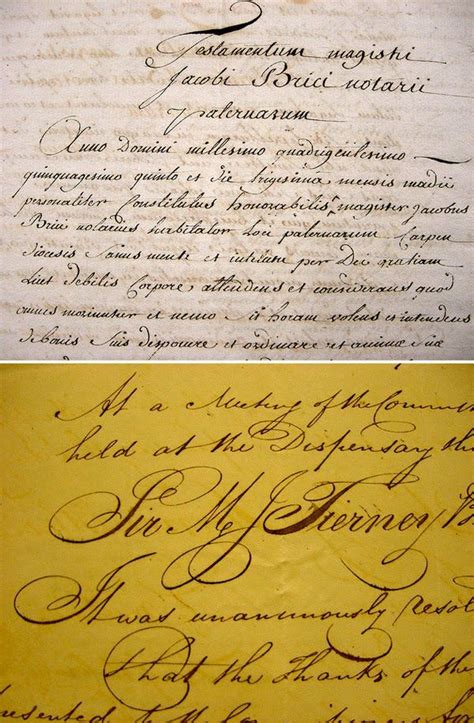 Testamentum magistri
Jacobi Brici notarii
paternarum
Anno Domini millesimo quadrigentesimo
quinquagesimo quinto et die trigesima mensis madii
personaliter Constitutus honorabilis magister jacobus
Brici notarius habitator loci paternarum Carpen
diocesis Sanus mente et intellectu per Dei gratiam
licet debilis Corpore attendens et considerans quod
omnes morimur et nemo horam volens et intendens
de bonis suis disponere et ordinare et animæ suæ
At a Meeting of the Comm
held at the Dispensary th
Sir M J Tierney B
It was unanimously resol
that the Thanks of the
presented to